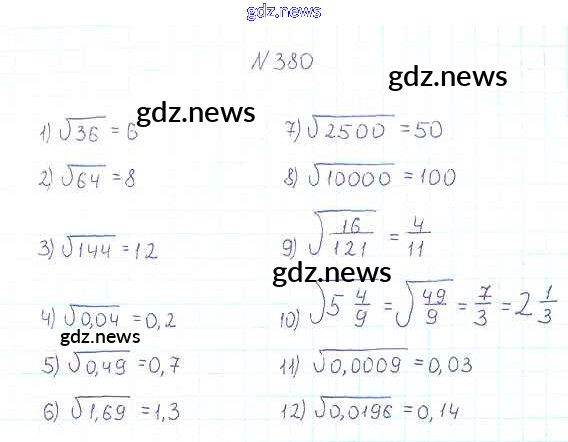 gdz.news
N 380
gdz.news
gdz.news
1) √36 = 6
2) √64 = 8
3) √144 = 12
4) √0,04 = 0,2
gdz.news
5) √0,49 = 0,7
6) √1,69 = 1,3
7) √2500 = 50
8) √10000 = 100
9) √16/121 = 4/11
gdz.news
10) √5 4/9 = √49/9 = 7/3 = 2 1/3
11) √0,0009 = 0,03
12) √0,0196 = 0,14